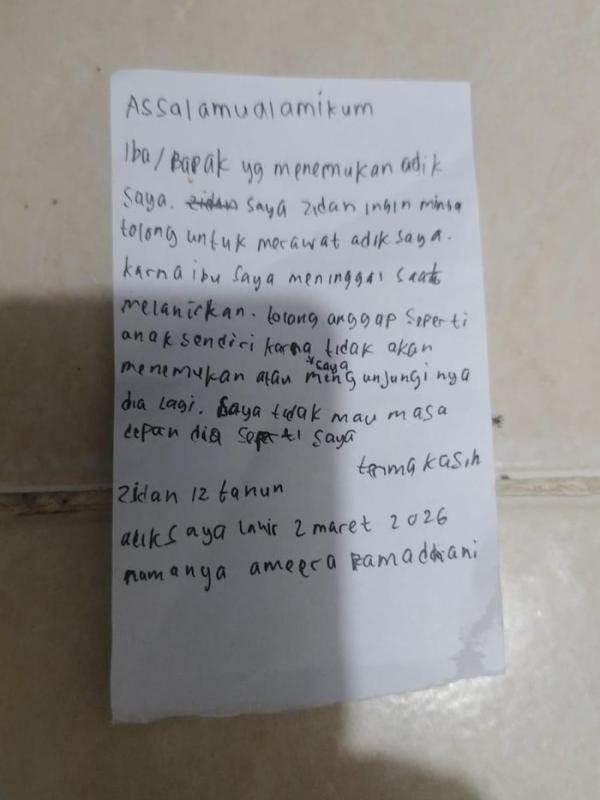 Assalamualamikum
Iba/Bapak yg menemukan adik
saya. zidan saya zidan ingin minta
tolong untuk merawat adik saya.
karna ibu saya meninggal saat
melahirkan. tolong anggap seperti
anak sendiri karna tidak akan
*saya
menemukan atau mengunjungi nya
dia lagi. saya tidak mau masa
depan dia seperti saya
terima kasih
Zidan 12 tahun
adik saya lahir 2 maret 2026
namanya ameera ramadhani